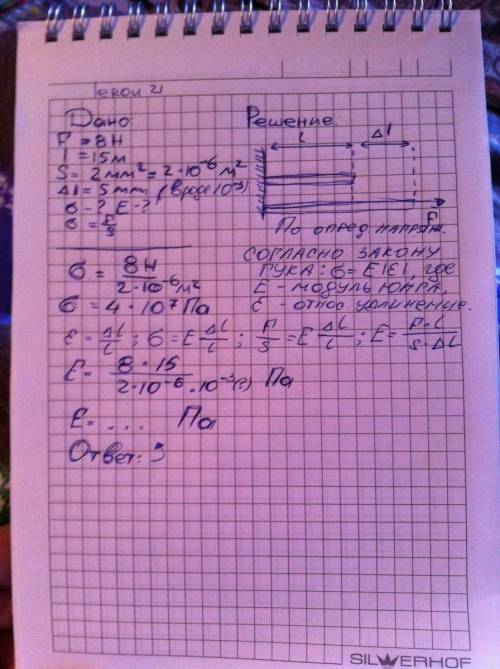 Дано:
Решение:
F = 8Н
l = 15м
S = 2 мм² = 2·10⁻⁶ м²
Δl = 5 мм (вроде 10⁻³)
σ - ? E - ?
σ = F/S
l Δl
F
По опред. напряж.
σ = 8Н / 2·10⁻⁶ м²
σ = 4·10⁷ Па
СОГЛАСНО ЗАКОНУ
ГУКА: σ = E|ε|, где
E - модуль Юнга,
ε - относ удлинение.
ε = Δl/l ; σ = E Δl/l ; F/S = E Δl/l ; E = F·l / S·Δl
E = 8·15 / 2·10⁻⁶·10⁻³(?) Па
E = ... Па
Ответ:
SILWERHOF